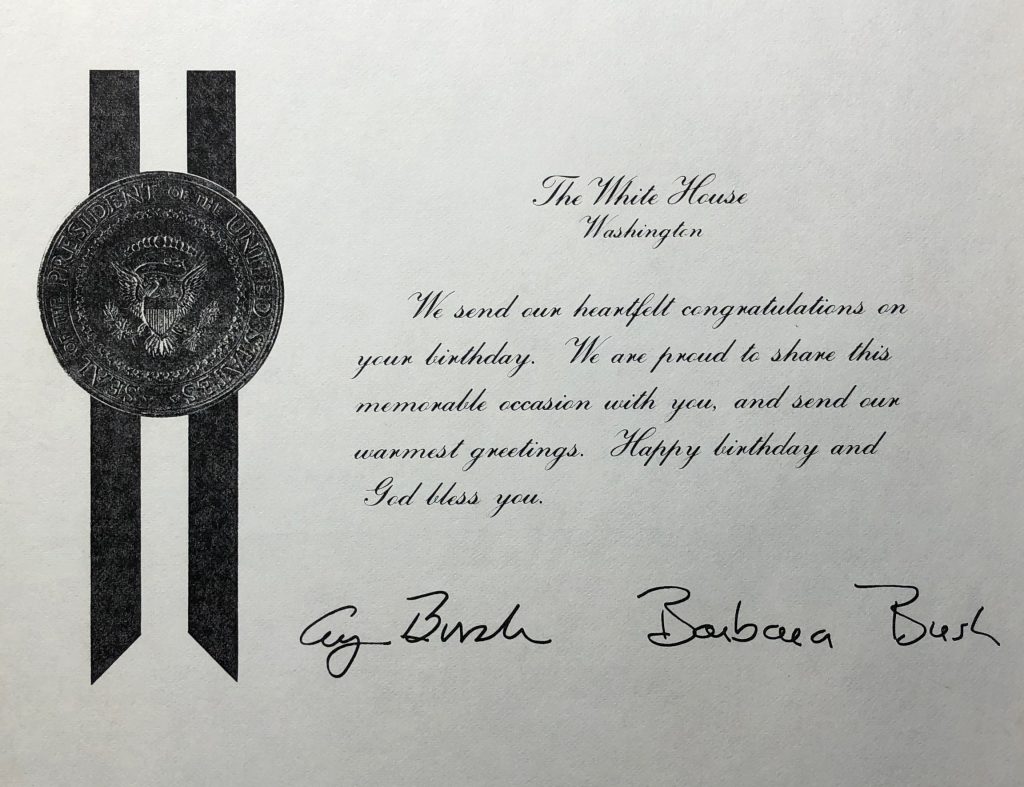 SEAL OF THE PRESIDENT OF THE UNITED STATES
The White House
Washington
We send our heartfelt congratulations on
your birthday. We are proud to share this
memorable occasion with you, and send our
warmest greetings. Happy birthday and
God bless you.
Bush
Barbara Bush